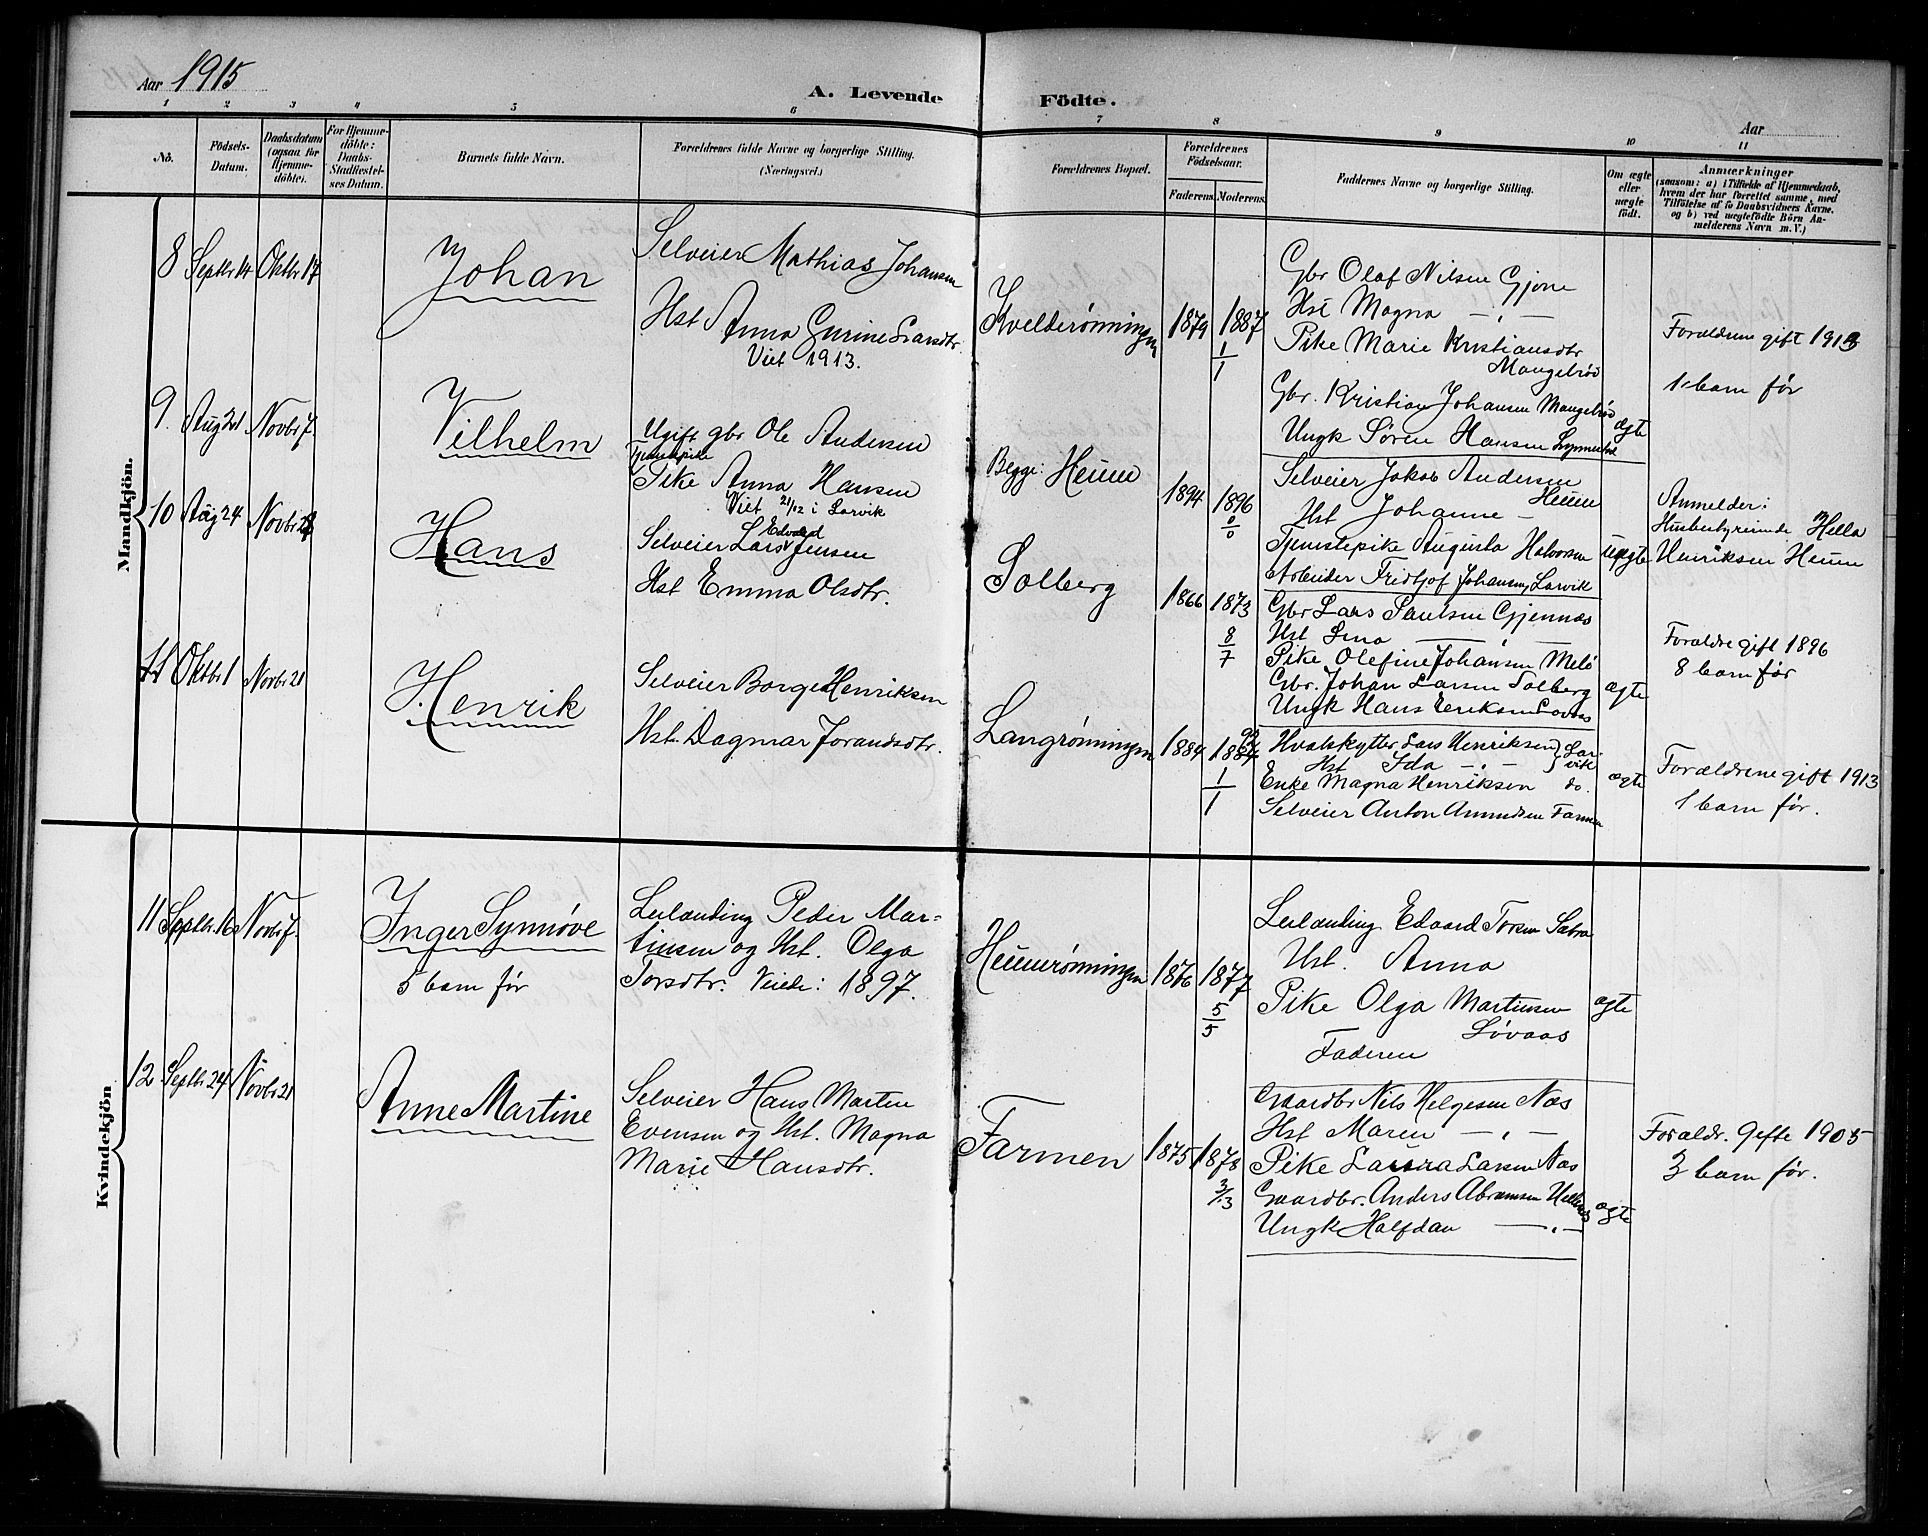 Aar 1915
A. Levende Födte.
Aar
1 2 3 4 5 6 7 8 9 10 11
No.
Födsels-
Datum.
Daabsdatum
(ogsaa for
Hjemme-
döbte).
For Hjemme-
döbte:
Daabs-
Stadfæstel-
ses Datum.
Barnets fulde Navn.
Forældrenes fulde Navne og borgerlige Stilling.
(Næringsvei.)
Forældrenes Bopæl.
Forældrenes
Födselsaar.
Faderens. Moderens.
Faddernes Navne og borgerlige Stilling.
Om ægte
eller
uægte
födt.
Anmærkninger
(saasom: a) i Tilfælde af Hjemmedaab,
hvem der har forrettet samme, med
Tilföielse af to Daabsvidners Navne.
og b) ved uægtefödte Börn An-
melderens Navn m. V.)
Mandkjön.
8 Septbr 14 Oktbr 17
Johan
Selveier Mathias Johansen
Hst Anna Gurine Larsdtr.
Viet 1913.
Kvelderønningen
1879 1887
1/1
Gbr Olaf Nilsen Gjone
Hst Magna — " —
Pike Marie Kristiansdtr
Mangelrød
Gbr. Kristian Johansen Mangelrød
Ungk Søren Hansen
ægte
Forældrene gift 1913
1 barn før
9. Aug 21 Novbr 7.
Vilhelm
Ugift gbr Ole Andersen
Tjenestepike
Pike Anna Hansen
Viet 21/12 i Larvik
Begge: Heum
1894 1896
0/0
Selveier Jakob Andersen
Heum
Hst Johanne —
Tjenestepike Augusta Halvorsen
Arbeider Fridtjof Johansen, Larvik
uægte
Anmelder:
Husbestyrerinde Hella
Henriksen Heum
10 Aug 24 Novbr
Hans
Edvard
Selveier Lars Jensen
Hst Emma Olsdtr.
Solberg
1866 1873
8/7
Gbr Lars Paulsen Gjennæs
Hst Lina — " —
Pike Olefine Johansen Melø
Gbr. Johan Larsen Solberg
Ungk Hans Eriksen Lovaas
ægte
Forældre gift 1896
8 barn før
11 Oktbr 1 Novbr 21
Henrik
Selveier Borger Henriksen
Hst. Dagmar Jorandsdtr.
Langrønningen
1884
1/1
Hvalskytter Lars Henriksen } Lar-
Hst Ida — " — } vik
Enke Magna Henriksen do.
Selveier Anton Amundsen Farmen
ægte
Forældrene gift 1913
1 barn før.
Kvindekjön
11 Septbr. 16 Novbr 7.
Inger Synnøve
5 barn før
Leilænding Peder Mar-
tinsen og Hst. Olga
Torsdtr. Viede: 1897.
Heumrønningen
1876 1877
5/5
Leilænding Edvard Torsen Sætra
Hst. Anna
Pike Olga Martinsen
Løvaas
Faderen
ægte
12 Septbr 24 Novbr 21
Anne Martine
Selveier Hans Martin
Evensen og Hst. Magna
Marie Hansdtr.
Farmen
1875 1878
3/3
Gaardbr Nils Helgesen Næs
Hst Maren — " —
Pike Laura Larsen Næs
Gaardbr. Anders Abramsen
Ungk Halfdan — " —
ægte
Forældr. gifte 1905
3 barn før.